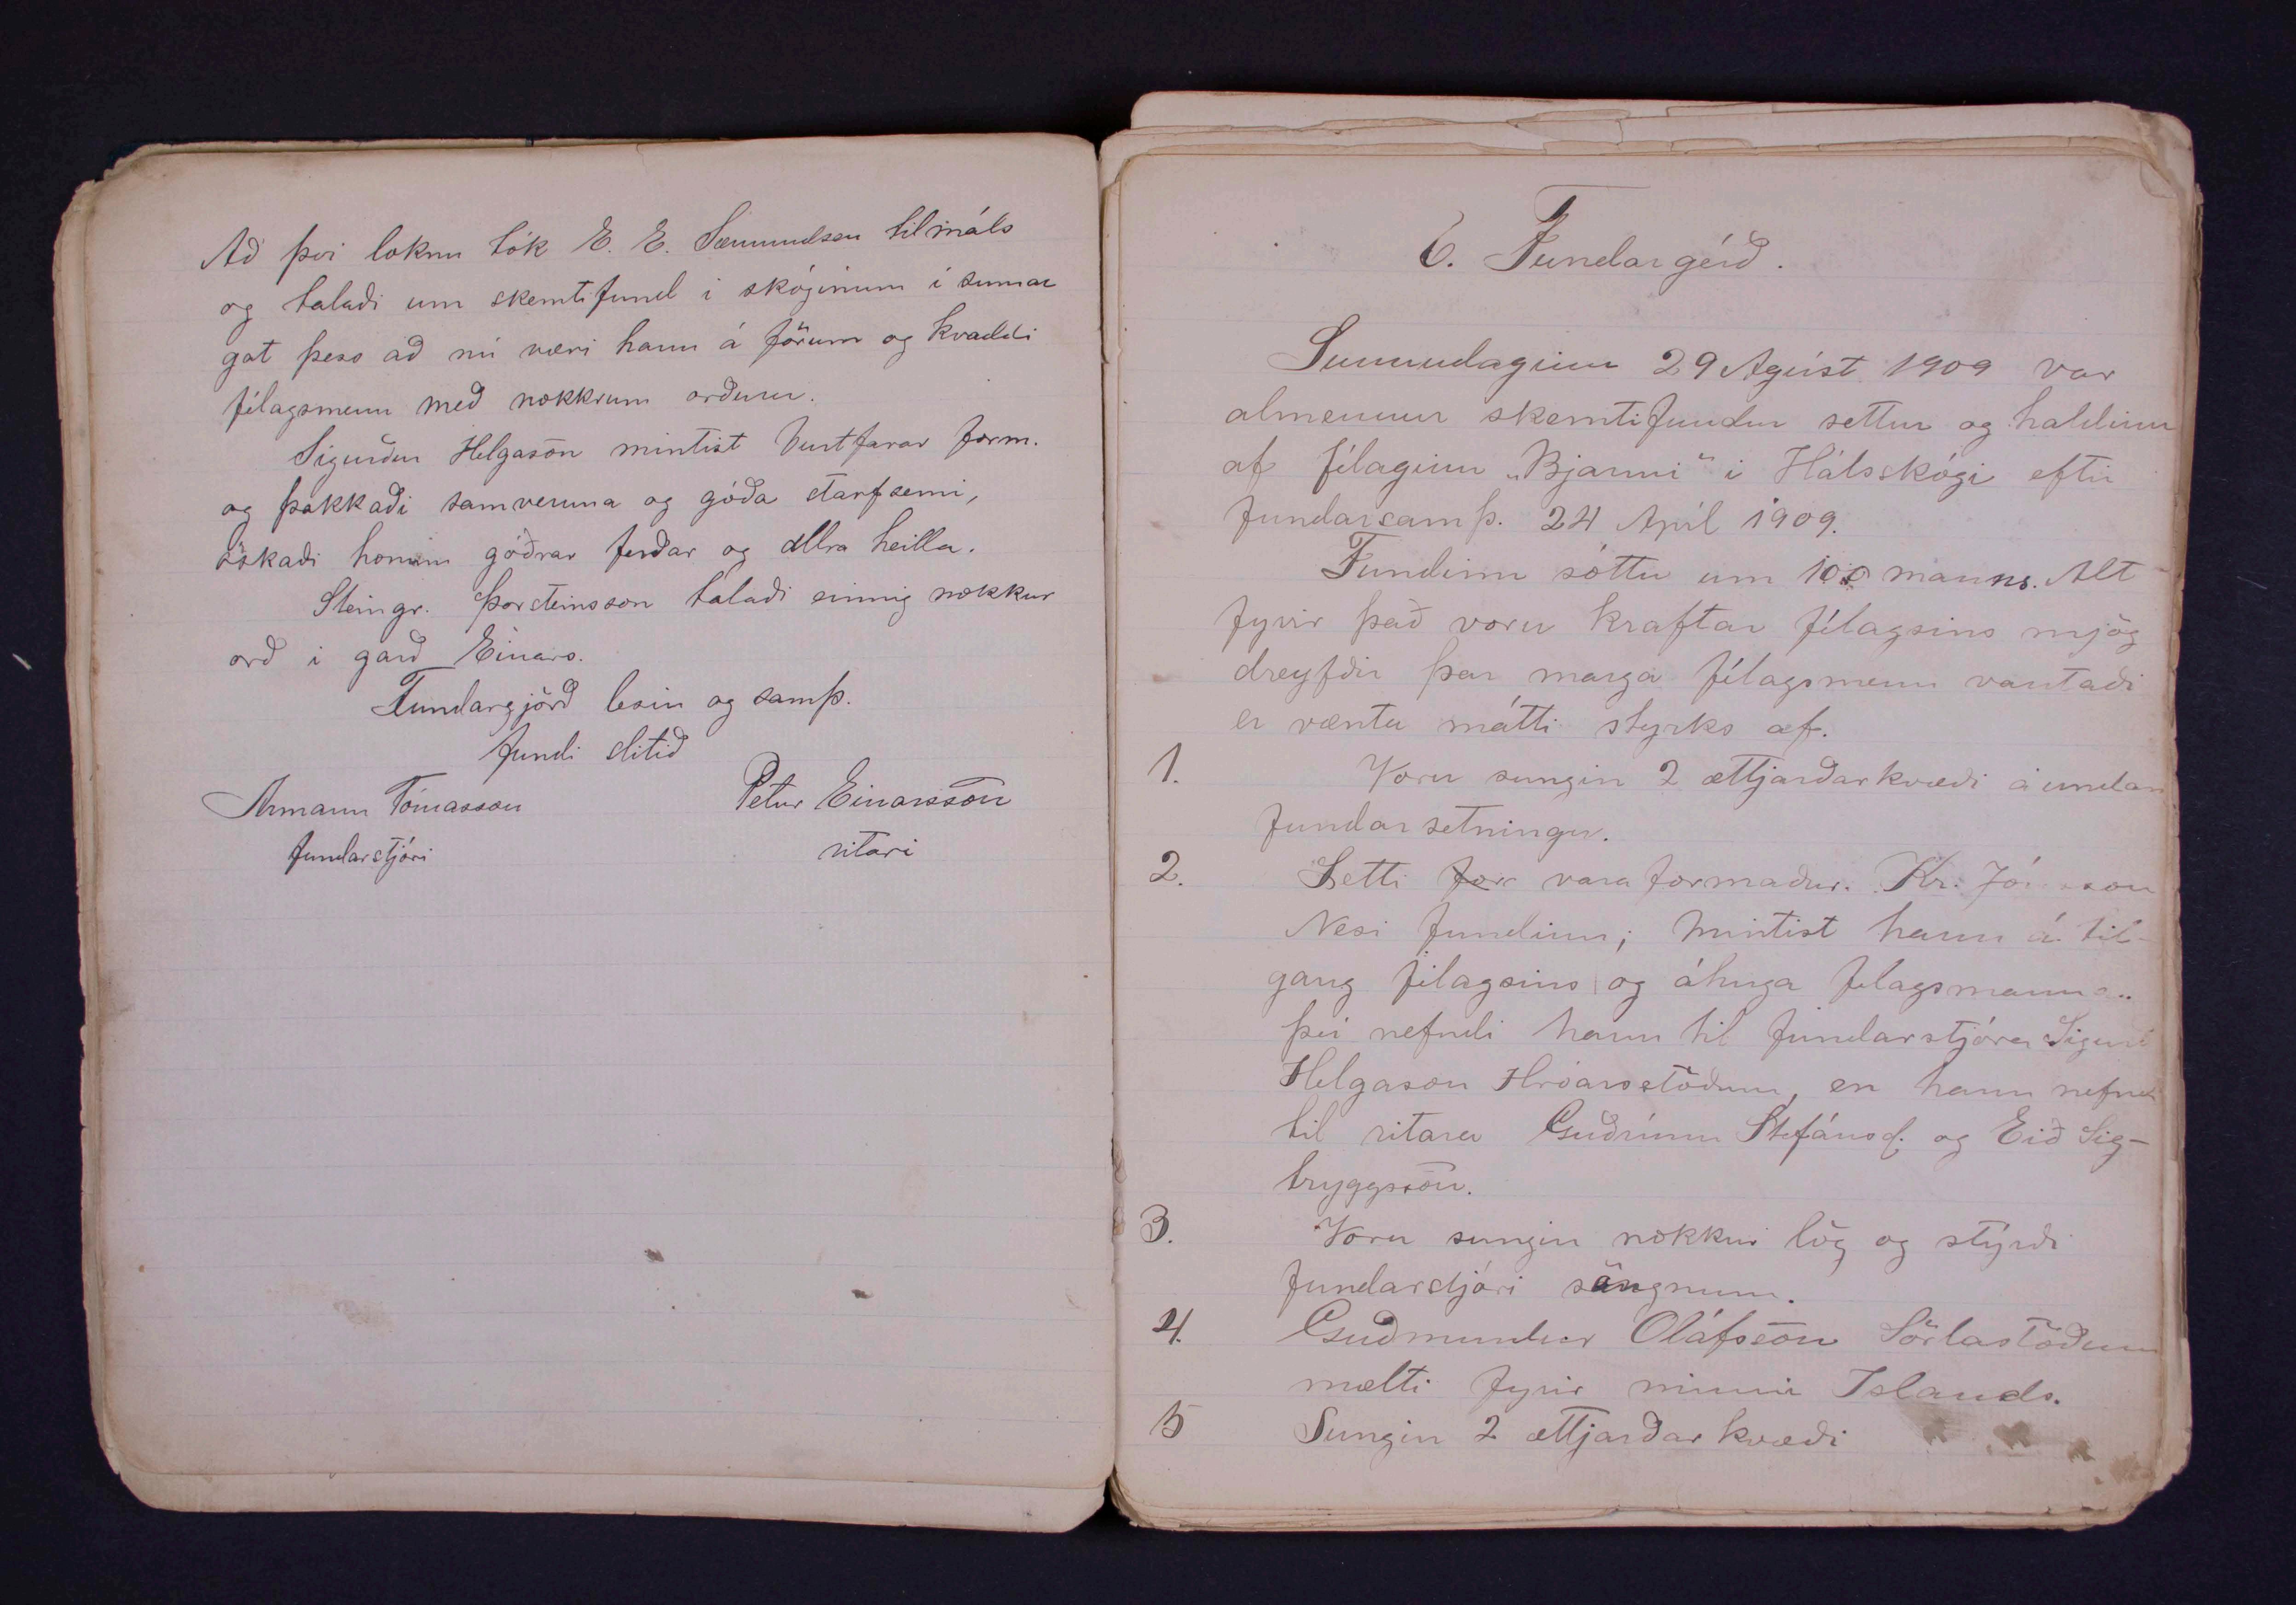 Að því loknu tók E. E. Sæmundsen til máls
og talaði um skemtifund i skóginum í sumar
gat þess að nú væri hann á förum og kvaddi
félagsmenn með nokkrum orðum.
Sigurður Helgason mintist burtfarar form.
og þakkaði samveruna og góða starfsemi,
óskaði honum góðrar ferðar og allra heilla.
Steingr. Þorsteinsson talaði einnig nokkur
orð i garð Einars.
Fundargjörð lesin og samþ.
fundi slitið
Armann Tómasson
Petur Einarsson
fundarstjóri
ritari
6. Fundargérð.
Sunnudaginn 29 Agúst 1909 var
almennur skemtifundur settur og haldinn
af félaginu „Bjarmi“ i Hálsskógi eftir
fundarsamþ. 24 Apíl 1909.
Fundinn sóttu um 100 manns. Alt
fyrir það voru kraftar félagsins mjög
dreyfðir þar marga félagsmenn vantaði
er vænta mátti styrks af.
1. Voru sungin 2 ættjarðarkvæði á undan
fundarsetningu.
2. Setti for varaformaður. Kr. Jónsson
Nesi fundinn; mintist hann á til-
gang félagsins og áhuga félagsmanna..
því nefndi hann til fundarstjóra Sigurð
Helgason Hróarsstöðum, en hann nefndi
til ritara Guðrúnu Stefánsd. og Eið Sig-
tryggsson.
3. Voru sungin nokkur lög og stýrði
fundarstjóri söngnum.
4. Guðmundur Oláfsson Sörlastöðum
mælti fyrir minni Islands.
5 Sungin 2 ættjarðarkvæði